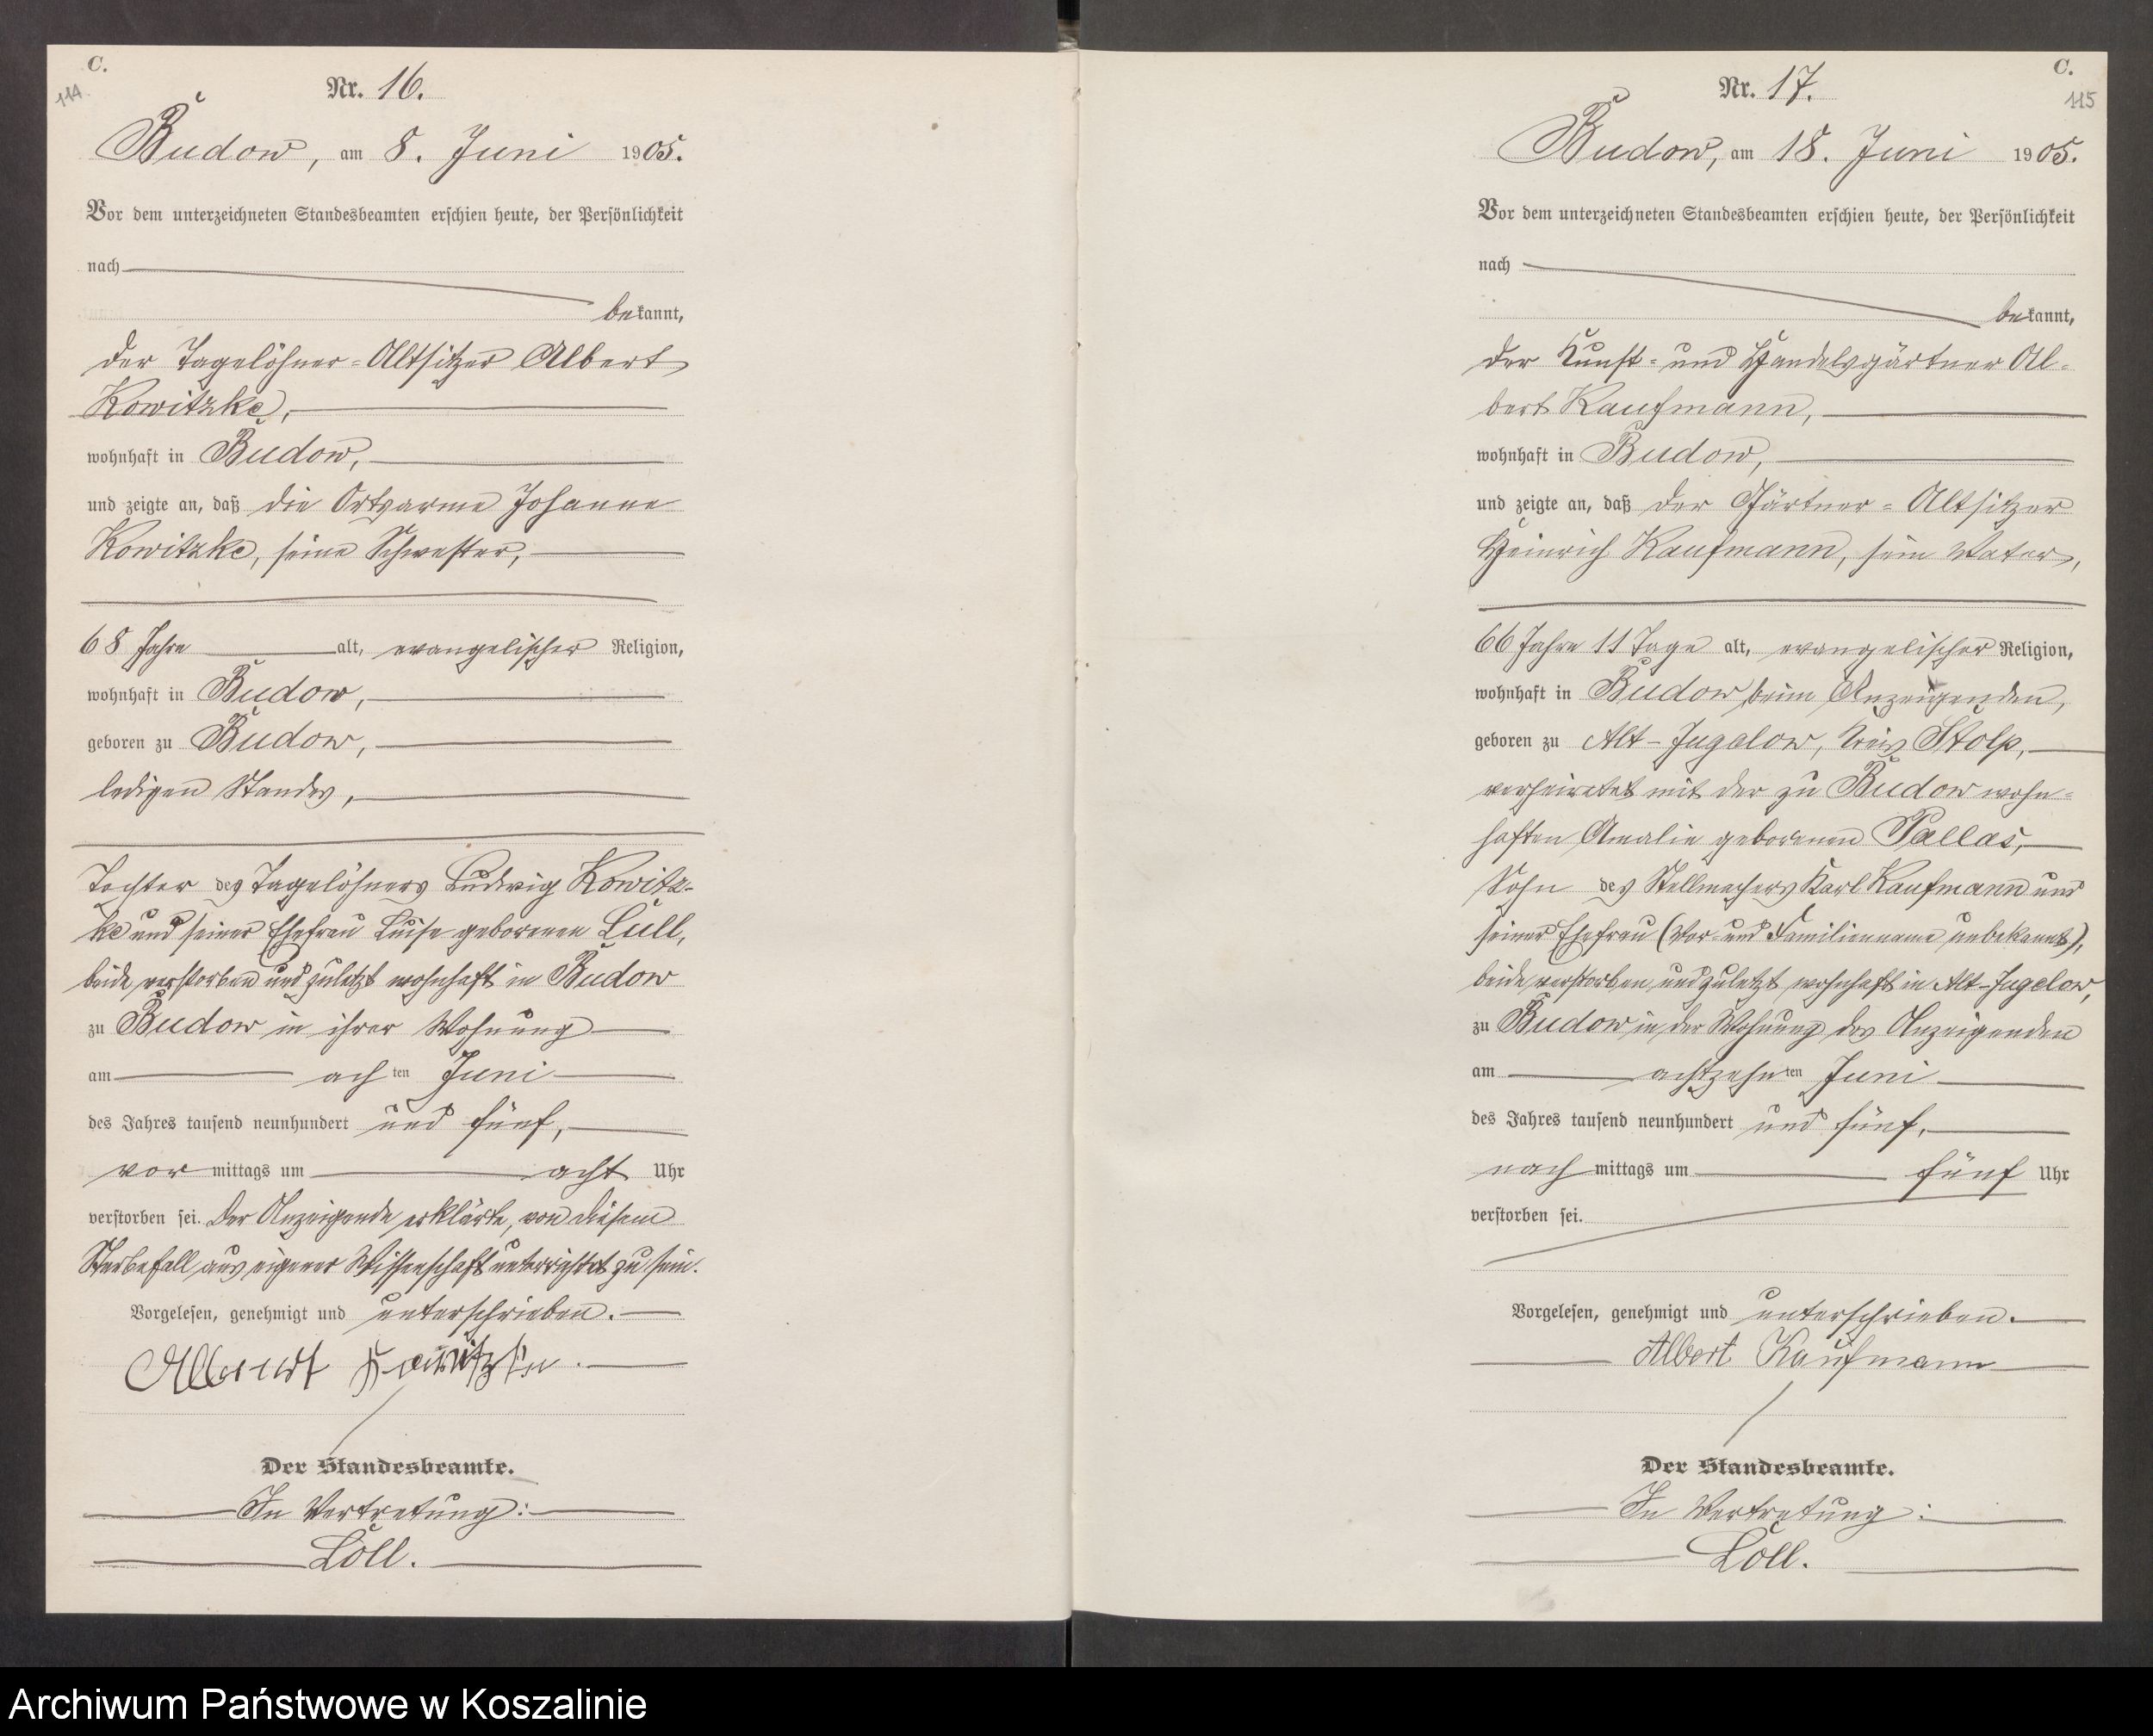 C.
114.
Nr. 16.
Budow, am 8. Juni 1905.
Vor dem unterzeichneten Standesbeamten erschien heute, der Persönlichkeit
nach
bekannt,
der Tagelöhner-Altsitzer Albert
Kowitzke,
wohnhaft in Budow,
und zeigte an, daß die Ortsarme Johanne
Kowitzke, seine Schwester,
68 Jahre alt, evangelischer Religion,
wohnhaft in Budow,
geboren zu Budow,
ledigen Standes,
Tochter des Tagelöhners Ludwig Kowitz-
ke und seiner Ehefrau Luise geborenen Lull,
beide verstorben und zuletzt wohnhaft in Budow
zu Budow in ihrer Wohnung
am achten Juni
des Jahres tausend neunhundert und fünf,
vormittags um acht Uhr
verstorben sei. Der Anzeigende erklärte, von diesem
Sterbefall aus eigener Wissenschaft unterrichtet zu sein.
Vorgelesen, genehmigt und unterschrieben.
Albert Kowitzke.
Der Standesbeamte.
In Vertretung:
Löll.
C.
115
Nr. 17.
Budow, am 18. Juni 1905.
Vor dem unterzeichneten Standesbeamten erschien heute, der Persönlichkeit
nach
bekannt,
der Kunst- und Handelsgärtner Al-
bert Kaufmann,
wohnhaft in Budow,
und zeigte an, daß der Gärtner-Altsitzer
Heinrich Kaufmann, sein Vater,
66 Jahre 11 Tage alt, evangelischer Religion,
wohnhaft in Budow beim Anzeigenden,
geboren zu Alt-Jugelow, Kreis Stolp,
verheiratet mit der zu Budow wohn-
haften Amalie geborenen Pallas,
Sohn des Stellmachers Karl Kaufmann und
seiner Ehefrau (Vor- und Familienname unbekannt),
beide verstorben und zuletzt wohnhaft in Alt-Jugelow,
zu Budow in der Wohnung des Anzeigenden
am achtzehnten Juni
des Jahres tausend neunhundert und fünf,
nachmittags um fünf Uhr
verstorben sei.
Vorgelesen, genehmigt und unterschrieben.
Albert Kaufmann
Der Standesbeamte.
In Vertretung:
Löll.
Archiwum Państwowe w Koszalinie